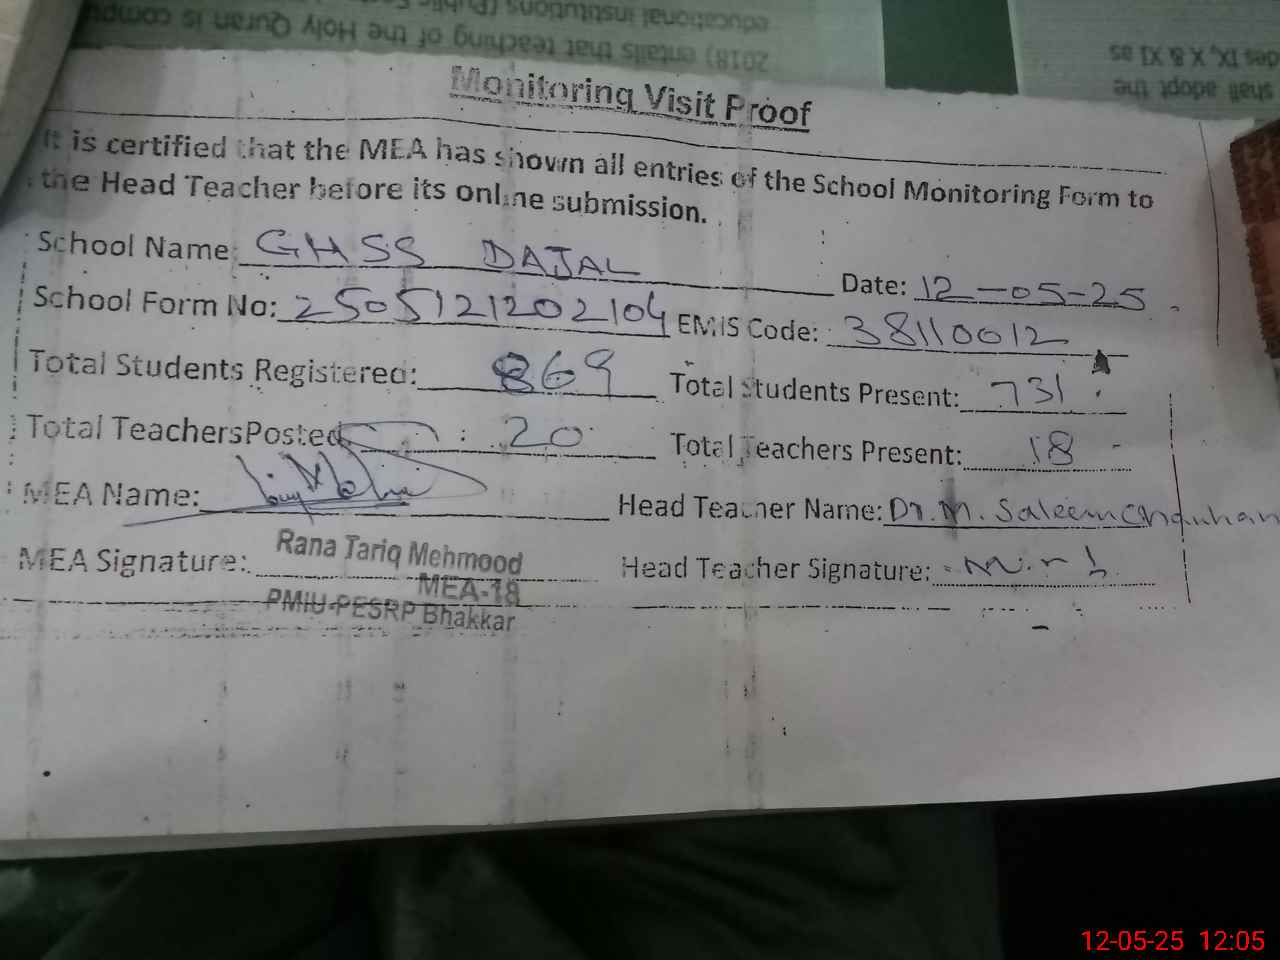 educational institutions (Public
2018) entails that teaching of the Holy Quran is compu
des IX, X & XI as
shall adopt the
Monitoring Visit Proof
It is certified that the MEA has shown all entries of the School Monitoring Form to
the Head Teacher before its online submission.
School Name: GHSS DAJAL
Date: 12-05-25
School Form No: 2505121202104 EMIS Code: 38110012
Total Students Registered: 869 Total Students Present: 731
Total Teachers Posted: 20 Total Teachers Present: 18
MEA Name: Head Teacher Name: Dr. M. Saleem Chauhan
MEA Signature: Rana Tariq Mehmood Head Teacher Signature:
MEA-18
PMIU-PESRP Bhakkar
12-05-25 12:05